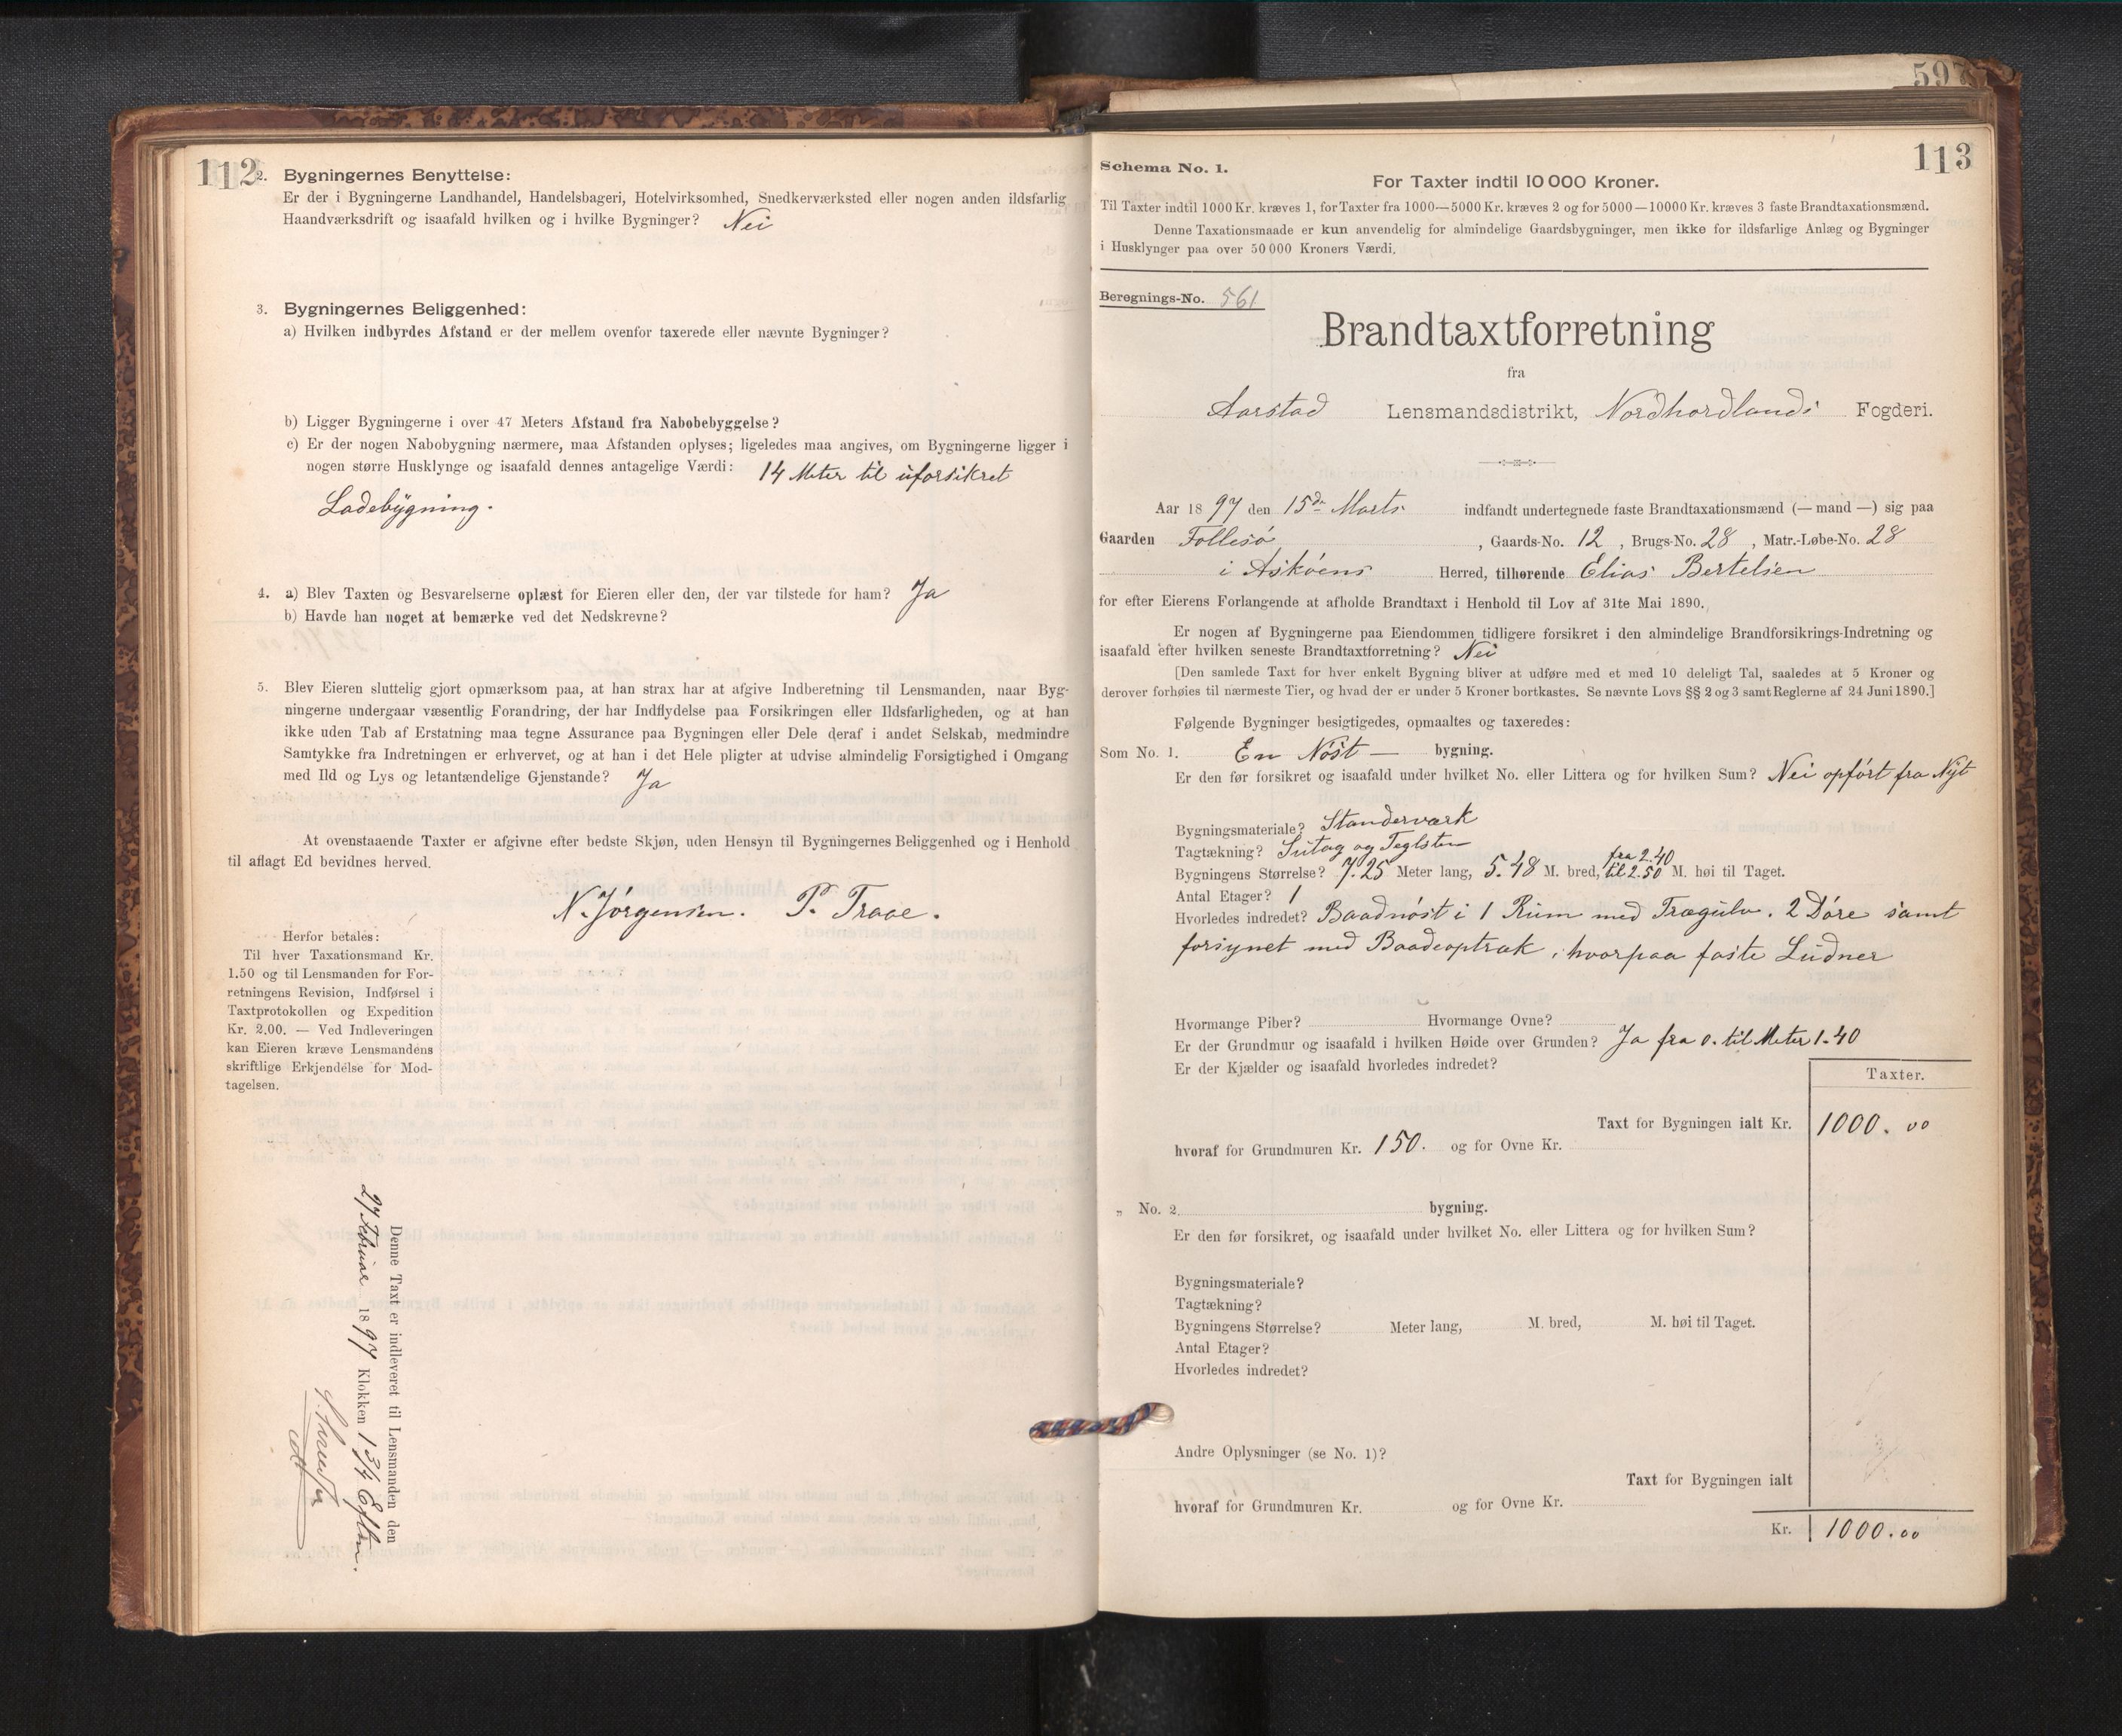 112
2. Bygningernes Benyttelse:
Er der i Bygningerne Landhandel, Handelsbageri, Hotelvirksomhed, Snedkerværksted eller nogen anden ildsfarlig
Haandværksdrift og isaafald hvilken og i hvilke Bygninger? Nei
3. Bygningernes Beliggenhed:
a) Hvilken indbyrdes Afstand er der mellem ovenfor taxerede eller nævnte Bygninger?
b) Ligger Bygningerne i over 47 Meters Afstand fra Nabobebyggelse?
c) Er der nogen Nabobygning nærmere, maa Afstanden oplyses; ligeledes maa angives, om Bygningerne ligger i
nogen større Husklynge og isaafald dennes antagelige Værdi: 14 Meter til uforsikret
Ladebygning.
4. a) Blev Taxten og Besvarelserne oplæst for Eieren eller den, der var tilstede for ham? Ja
b) Havde han noget at bemærke ved det Nedskrevne?
5. Blev Eieren sluttelig gjort opmærksom paa, at han strax har at afgive Indberetning til Lensmanden, naar Byg-
ningerne undergaar væsentlig Forandring, der har Indflydelse paa Forsikringen eller Ildsfarligheden, og at han
ikke uden Tab af Erstatning maa tegne Assurance paa Bygningen eller Dele deraf i andet Selskab, medmindre
Samtykke fra Indretningen er erhvervet, og at han i det Hele pligter at udvise almindelig Forsigtighed i Omgang
med Ild og Lys og letantændelige Gjenstande? Ja
At ovenstaaende Taxter er afgivne efter bedste Skjøn, uden Hensyn til Bygningernes Beliggenhed og i Henhold
til aflagt Ed bevidnes herved.
N. Jørgensen. P. Traae.
Herfor betales:
Til hver Taxationsmand Kr.
1.50 og til Lensmanden for For-
retningens Revision, Indførsel i
Taxtprotokollen og Expedition
Kr. 2.00. — Ved Indleveringen
kan Eieren kræve Lensmandens
skriftlige Erkjendelse for Mod-
tagelsen.
Denne Taxt er indleveret til Lensmanden den
27 Februar 1897 Klokken 1 3/4 Eftm.
597
113
Schema No. 1.
For Taxter indtil 10 000 Kroner.
Til Taxter indtil 1000 Kr. kræves 1, for Taxter fra 1000—5000 Kr. kræves 2 og for 5000—10000 Kr. kræves 3 faste Brandtaxationsmænd.
Denne Taxationsmaade er kun anvendelig for almindelige Gaardsbygninger, men ikke for ildsfarlige Anlæg og Bygninger
i Husklynger paa over 50 000 Kroners Værdi.
Beregnings-No. 561
Brandtaxtforretning
fra
Aarstad Lensmandsdistrikt, Nordhordlands Fogderi.
Aar 1897 den 15de Marts indfandt undertegnede faste Brandtaxationsmænd (— mand —) sig paa
Gaarden Follesø , Gaards-No. 12 , Brugs-No. 28 , Matr.-Løbe-No. 28
i Askøens Herred, tilhørende Elias Bertelsen
for efter Eierens Forlangende at afholde Brandtaxt i Henhold til Lov af 31te Mai 1890.
Er nogen af Bygningerne paa Eiendommen tidligere forsikret i den almindelige Brandforsikrings-Indretning og
isaafald efter hvilken seneste Brandtaxtforretning? Nei
[Den samlede Taxt for hver enkelt Bygning bliver at udføre med et med 10 deleligt Tal, saaledes at 5 Kroner og
derover forhøies til nærmeste Tier, og hvad der er under 5 Kroner bortkastes. Se nævnte Lovs §§ 2 og 3 samt Reglerne af 24 Juni 1890.]
Følgende Bygninger besigtigedes, opmaaltes og taxeredes:
Som No. 1. En Nøst — bygning.
Er den før forsikret og isaafald under hvilket No. eller Littera og for hvilken Sum? Nei opført fra Nyt
Bygningsmateriale? Standerværk
Tagtækning? Sutag og Teglsten
fra 2.40
Bygningens Størrelse? 7.25 Meter lang, 5.48 M. bred, til 2.50 M. høi til Taget.
Antal Etager? 1
Hvorledes indredet? Baadnøst i 1 Rum med Trægulv. 2 Døre samt
forsynet med Baadeoptræk, hvorpaa faste Ludner
Hvormange Piber? Hvormange Ovne?
Er der Grundmur og isaafald i hvilken Høide over Grunden? Ja fra 0. til Meter 1.40
Er der Kjælder og isaafald hvorledes indredet?
Taxter.
Taxt for Bygningen ialt Kr. 1000.00
hvoraf for Grundmuren Kr. 150. og for Ovne Kr.
„ No. 2 bygning.
Er den før forsikret, og isaafald under hvilket No. eller Littera og for hvilken Sum?
Bygningsmateriale?
Tagtækning?
Bygningens Størrelse? Meter lang, M. bred, M. høi til Taget.
Antal Etager?
Hvorledes indredet?
Andre Oplysninger (se No. 1)?
Taxt for Bygningen ialt
hvoraf for Grundmuren Kr. og for Ovne Kr.
Kr. 1000.00